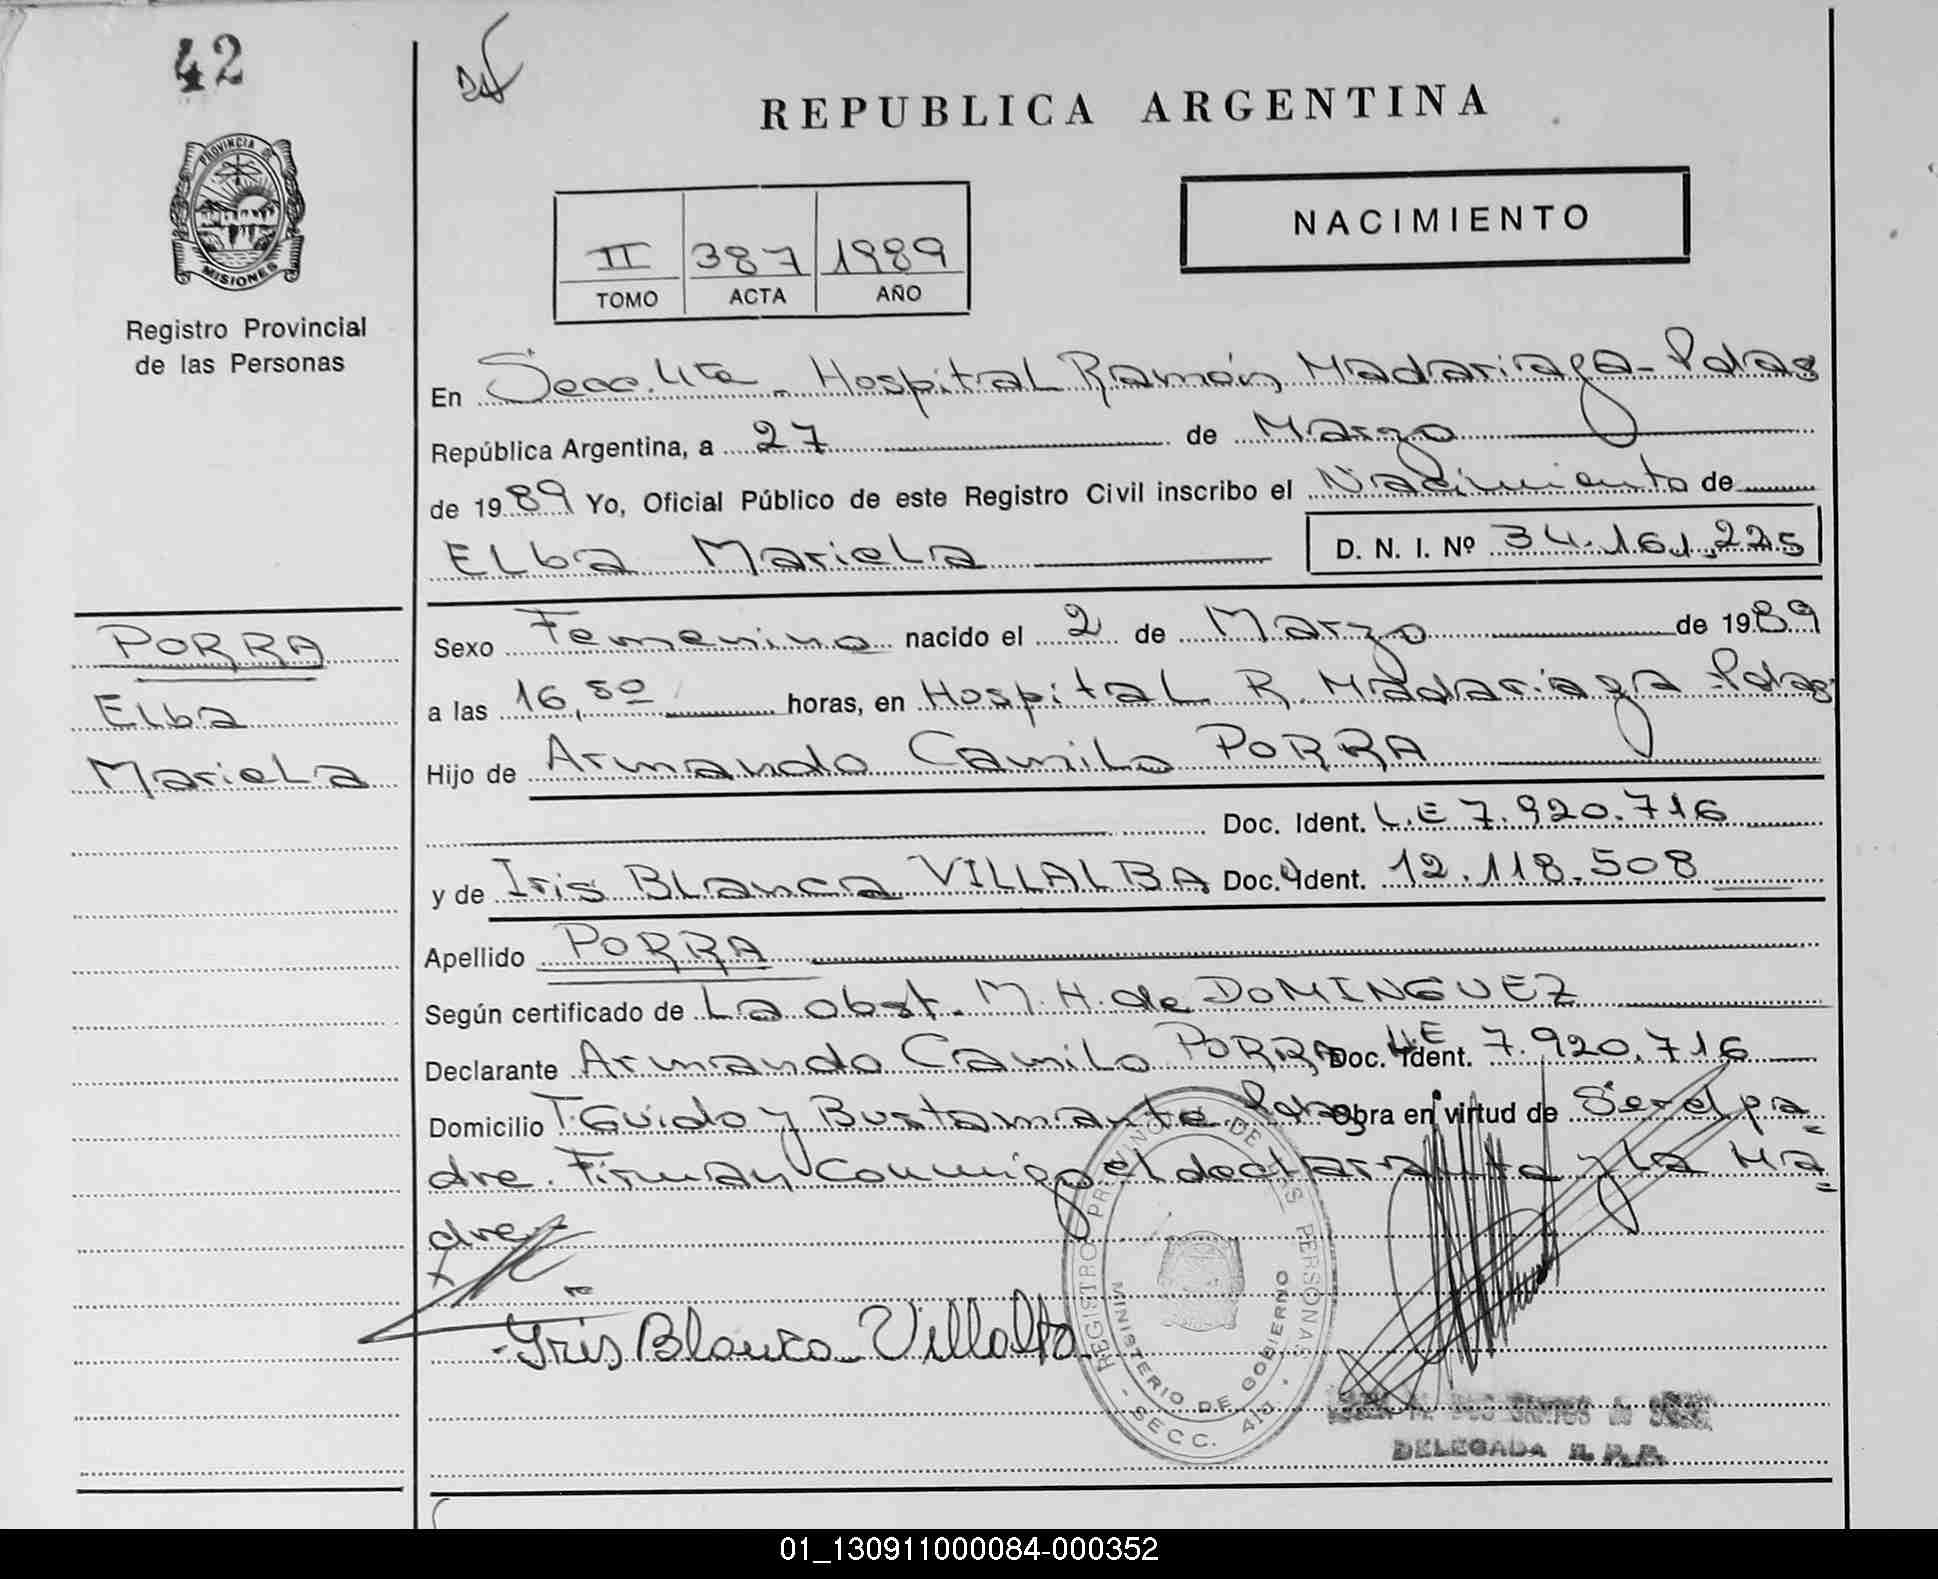 42
REPUBLICA ARGENTINA
PROVINCIA DE
MISIONES
Registro Provincial
de las Personas
NACIMIENTO
II 387 1989
TOMO ACTA AÑO
En Secc. 4ta - Hospital Ramón Madariaga - Pdas
República Argentina, a 27 de Marzo
de 1989 Yo, Oficial Público de este Registro Civil inscribo el Nacimiento de
Elba Mariela D. N. I. Nº 34.161.225
PORRA
Elba
Mariela
Sexo Femenino nacido el 2 de Marzo de 1989
a las 16,50 horas, en Hospital R. Madariaga - Pdas
Hijo de Armando Camilo PORRA
Doc. Ident. L.E 7.920.716
y de Iris Blanca VILLALBA Doc. Ident. 12.118.508
Apellido PORRA
Según certificado de La obst. M. H. de DOMINGUEZ
Declarante Armando Camilo PORRA Doc. Ident. L.E 7.920.716
Domicilio T. Guido y Bustamante Pdas Obra en virtud de Ser el pa=
dre. Firman conmigo el declarante y la Ma=
dre
Iris Blanca Villalba
REGISTRO PROVINCIAL DE LAS PERSONAS
MINISTERIO DE GOBIERNO
SECC. 4ta
DELEGADA R. P. P.
01_130911000084-000352